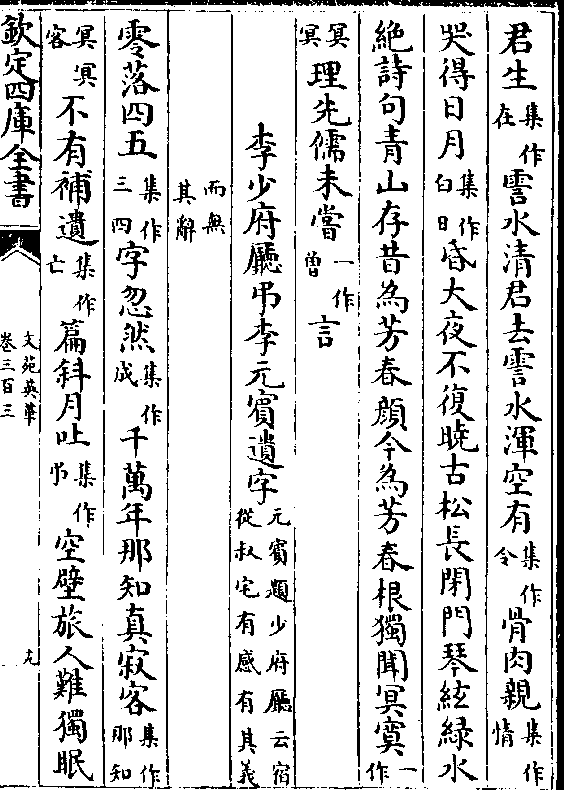 君生集作在霅水清君去霅水渾空有集作令骨肉親集作情
哭得日月集作白日昏大夜不復曉古松長閉門琴絃綠水
絶詩句青山存昔為芳春顔今為芳春根獨聞冥寞一作
冥冥理先儒未嘗一作曽言
李少府廳弔李元賓遺字元賓題少府廳云宿從叔宅有感有其義
而無其辭
零落四五集作三四字忽然集作成千萬年那知真寂客集作那知
冥冥客不有補遺集作亡篇斜月吐集作弔空壁旅人難獨眠
欽定四庫全書
文苑英華
卷三百三